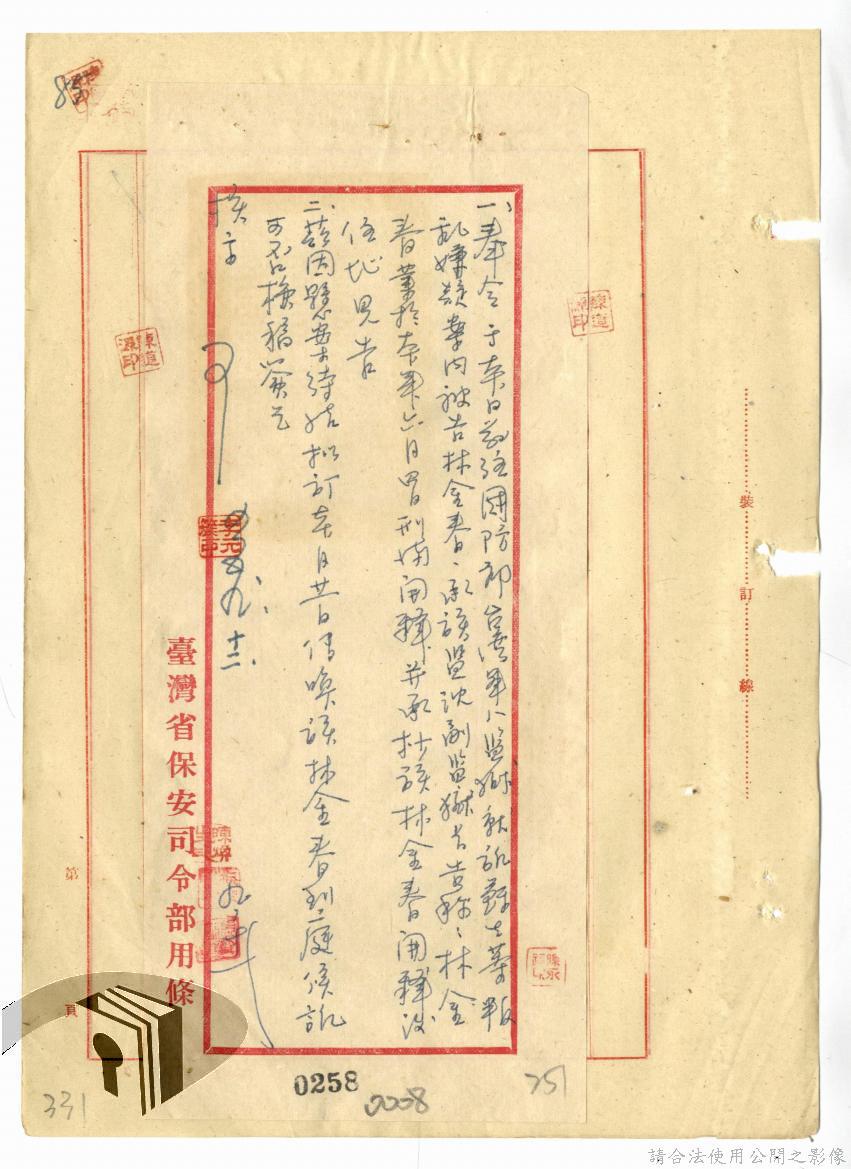 一、奉令于本日前往國防部台灣軍人監獄就訊蘇士蓁叛
亂嫌疑案内被告林金春、承該監沈副監獄長告稱：林金
春業於本年六月 日刑滿開釋并承抄該林金春開釋後
住址見告
二、茲因懸案待結擬訂本月廿 日傳喚該林金春到庭候訊
可否檢稿簽乞
核示
可
十二、
臺灣省保安司令部用條
第
頁
裝
訂
線
0258
0008
251
331
85
請合法使用公開之影像